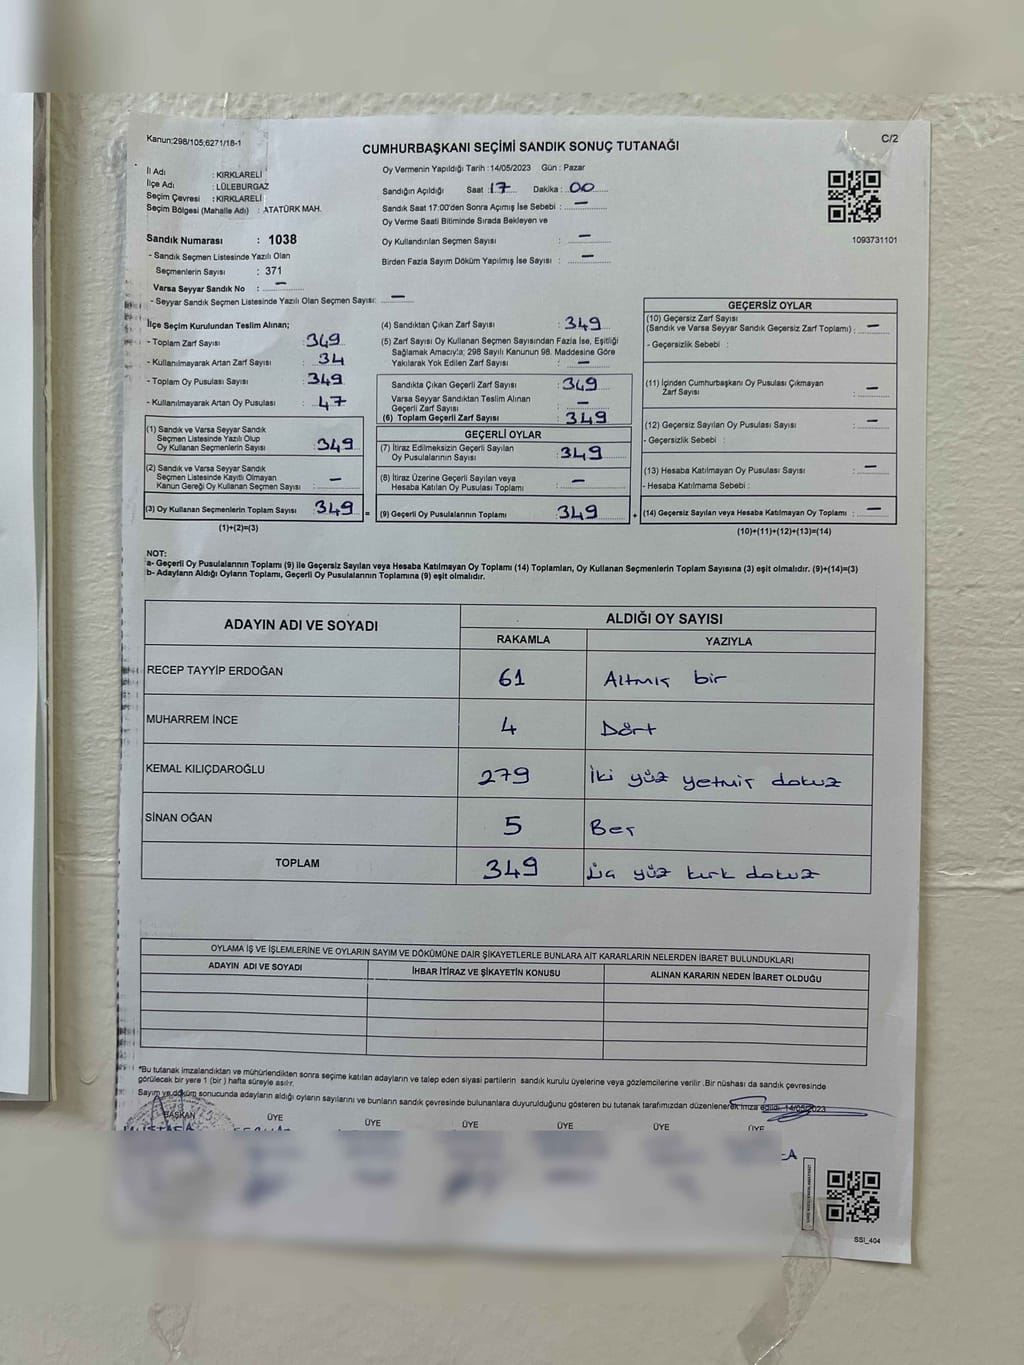 Kanun:298/105;6271/18-1
C/2
CUMHURBAŞKANI SEÇİMİ SANDIK SONUÇ TUTANAĞI
İl Adı : KIRKLARELİ
İlçe Adı : LÜLEBURGAZ
Seçim Çevresi : KIRKLARELİ
Seçim Bölgesi (Mahalle Adı) : ATATÜRK MAH.
Sandık Numarası : 1038
- Sandık Seçmen Listesinde Yazılı Olan
Seçmenlerin Sayısı : 371
Varsa Seyyar Sandık No : –
- Seyyar Sandık Seçmen Listesinde Yazılı Olan Seçmen Sayısı: –
Oy Vermenin Yapıldığı Tarih :14/05/2023 Gün : Pazar
Sandığın Açıldığı Saat : 17 Dakika : 00
Sandık Saat 17:00'den Sonra Açımış İse Sebebi : –
Oy Verme Saati Bitiminde Sırada Bekleyen ve
Oy Kullandırılan Seçmen Sayısı : –
Birden Fazla Sayım Döküm Yapılmış İse Sayısı : –
1093731101
İlçe Seçim Kurulundan Teslim Alınan;
- Toplam Zarf Sayısı : 349
- Kullanılmayarak Artan Zarf Sayısı : 34
- Toplam Oy Pusulası Sayısı : 349
- Kullanılmayarak Artan Oy Pusulası : 47
(1) Sandık ve Varsa Seyyar Sandık
Seçmen Listesinde Yazılı Olup
Oy Kullanan Seçmenlerin Sayısı : 349
(2) Sandık ve Varsa Seyyar Sandık
Seçmen Listesinde Kayıtlı Olmayan
Kanun Gereği Oy Kullanan Seçmen Sayısı : –
(3) Oy Kullanan Seçmenlerin Toplam Sayısı : 349 =
(1)+(2)=(3)
(4) Sandıktan Çıkan Zarf Sayısı : 349
(5) Zarf Sayısı Oy Kullanan Seçmen Sayısından Fazla İse, Eşitliği
Sağlamak Amacıyla; 298 Sayılı Kanunun 98. Maddesine Göre
Yakılarak Yok Edilen Zarf Sayısı : –
Sandıkta Çıkan Geçerli Zarf Sayısı : 349
Varsa Seyyar Sandıktan Teslim Alınan
Geçerli Zarf Sayısı : –
(6) Toplam Geçerli Zarf Sayısı : 349
GEÇERLİ OYLAR
(7) İtiraz Edilmeksizin Geçerli Sayılan
Oy Pusulalarının Sayısı : 349
(8) İtiraz Üzerine Geçerli Sayılan veya
Hesaba Katılan Oy Pusulası Toplamı : –
(9) Geçerli Oy Pusulalarının Toplamı : 349 +
GEÇERSİZ OYLAR
(10) Geçersiz Zarf Sayısı
(Sandık ve Varsa Seyyar Sandık Geçersiz Zarf Toplamı) : –
- Geçersizlik Sebebi :
(11) İçinden Cumhurbaşkanı Oy Pusulası Çıkmayan
Zarf Sayısı : –
(12) Geçersiz Sayılan Oy Pusulası Sayısı : –
- Geçersizlik Sebebi :
(13) Hesaba Katılmayan Oy Pusulası Sayısı : –
- Hesaba Katılmama Sebebi :
(14) Geçersiz Sayılan veya Hesaba Katılmayan Oy Toplamı : –
(10)+(11)+(12)+(13)=(14)
NOT:
a- Geçerli Oy Pusulalarının Toplamı (9) ile Geçersiz Sayılan veya Hesaba Katılmayan Oy Toplamı (14) Toplamları, Oy Kullanan Seçmenlerin Toplam Sayısına (3) eşit olmalıdır. (9)+(14)=(3)
b- Adayların Aldığı Oyların Toplamı, Geçerli Oy Pusulalarının Toplamına (9) eşit olmalıdır.
ADAYIN ADI VE SOYADI
ALDIĞI OY SAYISI
RAKAMLA YAZIYLA
RECEP TAYYİP ERDOĞAN 61 Altmış bir
MUHARREM İNCE 4 Dört
KEMAL KILIÇDAROĞLU 279 İki yüz yetmiş dokuz
SİNAN OĞAN 5 Beş
TOPLAM 349 Üç yüz kırk dokuz
OYLAMA İŞ VE İŞLEMLERİNE VE OYLARIN SAYIM VE DÖKÜMÜNE DAİR ŞİKAYETLERLE BUNLARA AİT KARARLARIN NELERDEN İBARET BULUNDUKLARI
ADAYIN ADI VE SOYADI İHBAR İTİRAZ VE ŞİKAYETİN KONUSU ALINAN KARARIN NEDEN İBARET OLDUĞU
*Bu tutanak imzalandıktan ve mühürlendikten sonra seçime katılan adayların ve talep eden siyasi partilerin sandık kurulu üyelerine veya gözlemcilerine verilir .Bir nüshası da sandık çevresinde
görülecek bir yere 1 (bir ) hafta süreyle asılır.
Sayım ve döküm sonucunda adayların aldığı oyların sayılarını ve bunların sandık çevresinde bulunanlara duyurulduğunu gösteren bu tutanak tarafımızdan düzenlenerek imza edildi. 14/05/2023
BAŞKAN ÜYE ÜYE ÜYE ÜYE ÜYE ÜYE
SSI_404